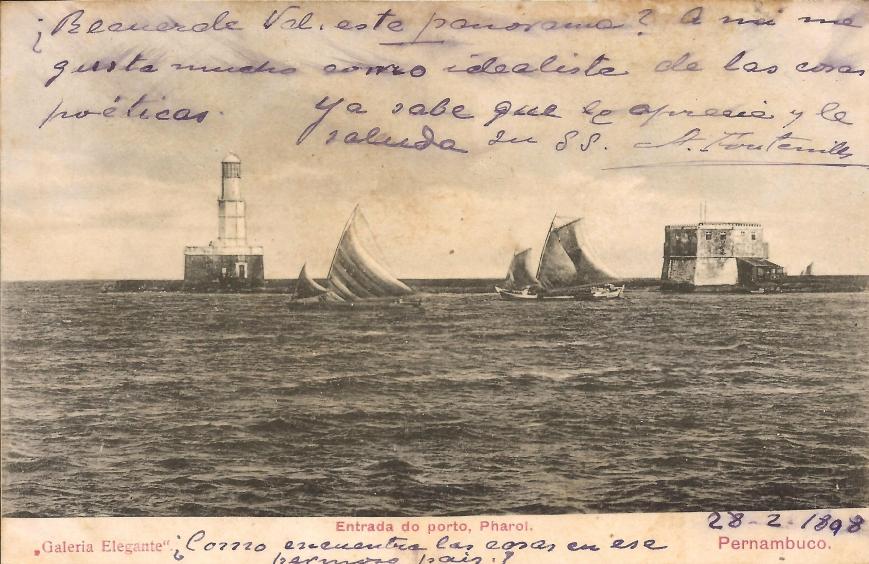 ¿Recuerda Vd. este panorama? A mi me
gusta mucho como idealista de las cosas
poéticas. Ya sabe que le aprecia y le
saluda su SS. A.
Entrada do porto, Pharol.
28-2-1898
„Galeria Elegante“
Pernambuco.
¿Como encuentra las cosas en ese
hermoso pais?